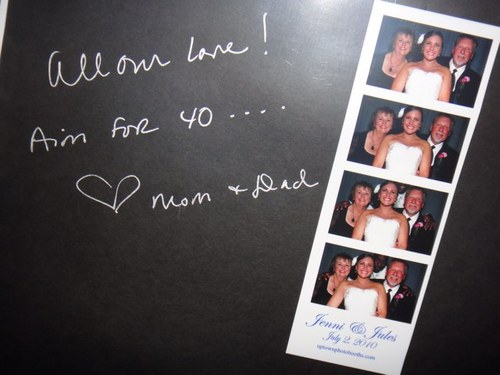 All our Love!
Aim FOR 40 ....
♡ mom + Dad
Jenni & Jules
July 2, 2010